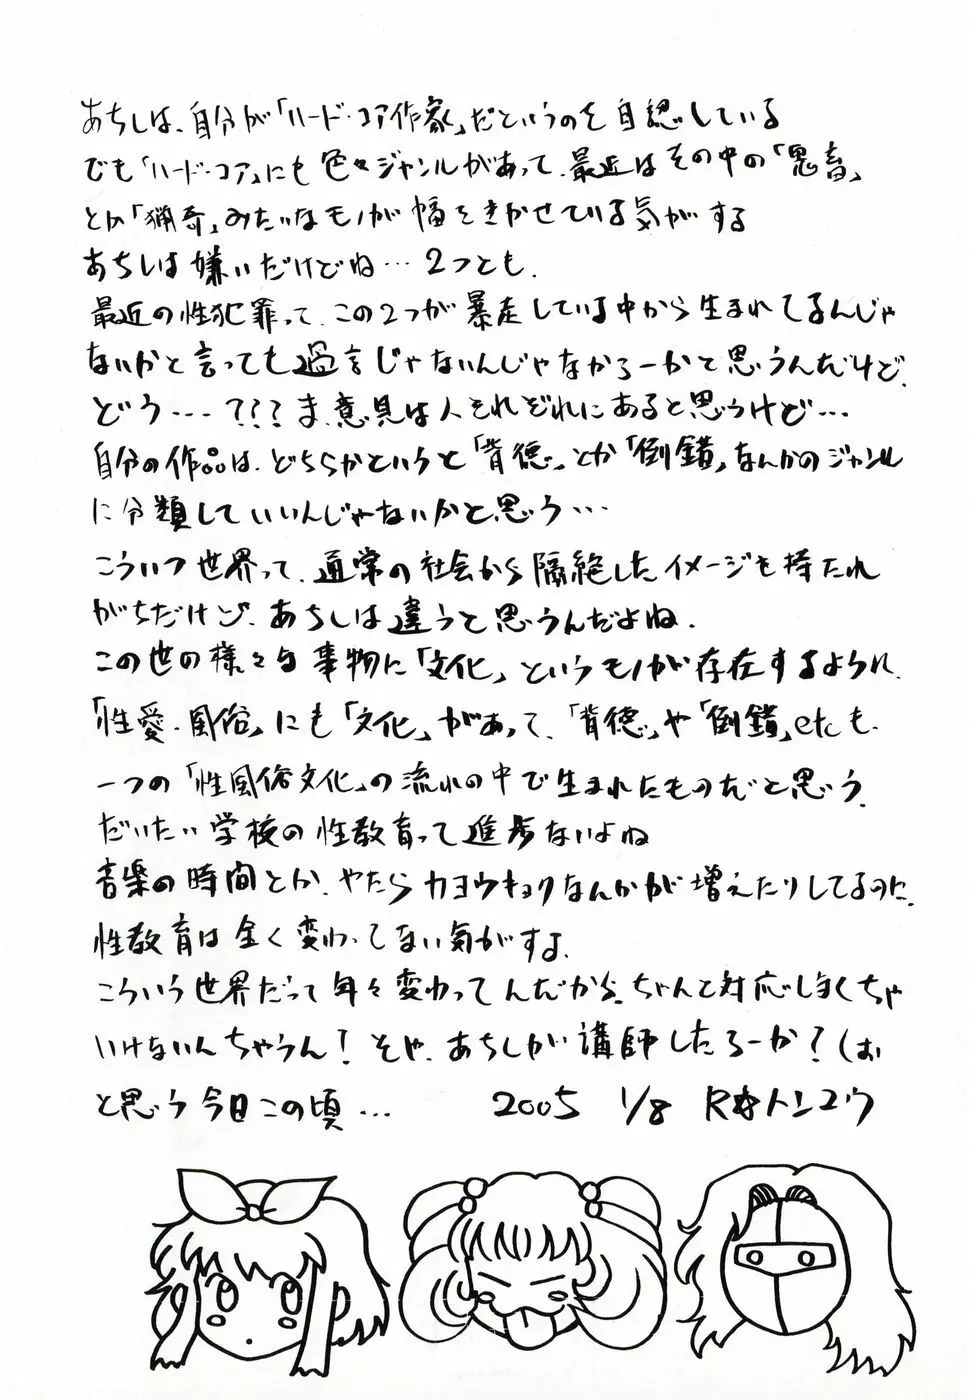 あちしは、自分が「ハード・コア作家」だというのを自認している
でも「ハード・コア」にも色々ジャンルがあって、最近はその中の「鬼畜」
とか「猟奇」みたいなモノが幅をきかせている気がする
あちしは嫌いだけどね…2つとも、
最近の性犯罪って、この2つが暴走している中から生まれてるんじゃ
ないかと言っても過言じゃないんじゃなかろーかと思うんだけど、
どう…???ま、意見は人それぞれにあると思うけど…
自分の作品は、どちらかというと「背徳」とか「倒錯」なんかのジャンル
に分類していいんじゃないかと思う…
こういつ世界って、通常の社会から隔絶したイメージを持たれ
がちだけど、あちしは違うと思うんだよね、
この世の様々な事物に「文化」というモノが存在するように、
「性愛・風俗」にも「文化」があって、「背徳」や「倒錯」etcも、
一つの「性風俗文化」の流れの中で生まれたものだと思う、
だいたい学校の性教育って進歩ないよね
音楽の時間とか、やたらカヨウキョクなんかが増えたりしてるのに、
性教育は全く変わってない気がするよ、
こういう世界だって年々変わってんだから、ちゃんと対応しなくちゃ
いけないんちゃうん!そや、あちしが講師したろーか?(お
と思う今日この頃… 2005 1/8 R☆トシユウ